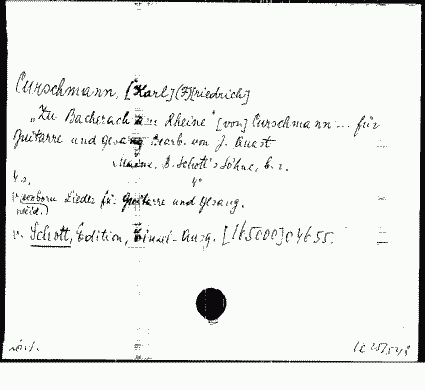 Curschmann, [Karl] (F)[riedrich]
"Zu Bacharach am Rheine" [von] Curschmann ... für
Guitarre und Gesang bearb. von J. Quast
Mainz, B. Schott's Söhne, o. J.
4 S. 4°
Lieder für Guitarre und Gesang.
v. Schott, Edition, Einzel-Ausg. [165000] 04655.